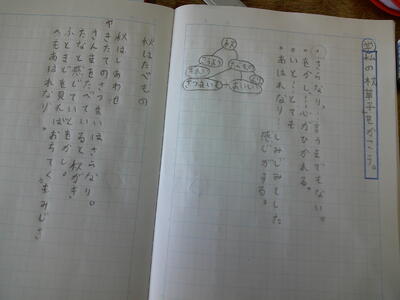 私の秋草子をかこう。
・さらなり。…言うまでもない。
・をかし…心がひかれる。
・いと…とても
・あはれなり…しみじみとした
感じがする。
秋
たべもの
さつまいも
おいしい
秋はたべもの
秋はしあわせ
やきたてのさつまいもはさらなり。
さんまをたべていると秋がき
たなと感じていとをかし。
ふとまどを見ればおちてくるもみじさ
へもあはれなり。